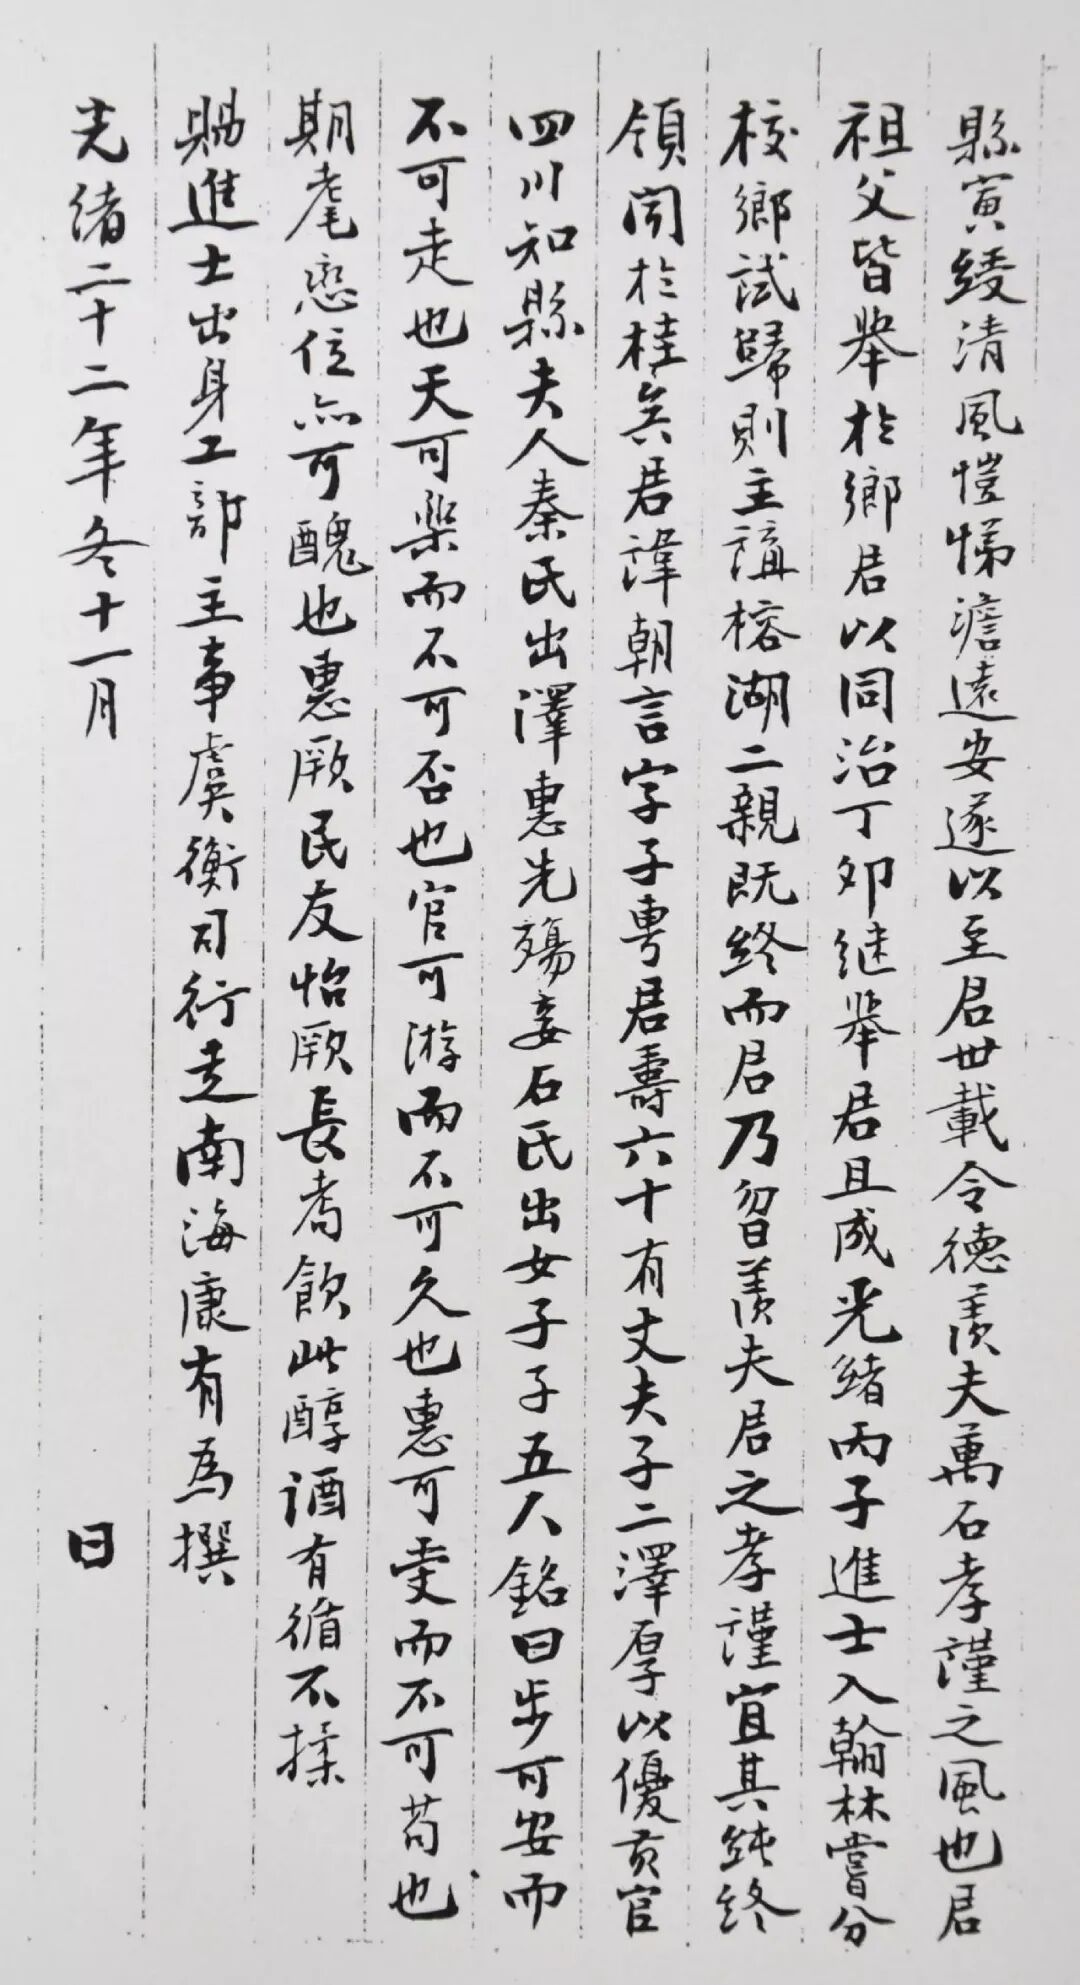 縣寅綾清風愷悌澹遠安遂以至君世載令德羨夫萬石孝謹之風也君
祖父皆舉於鄉君以同治丁卯继舉君且成光緒丙子進士入翰林嘗分
校鄉試歸則主講榕湖二親既終而君乃曶羨夫君之孝謹宜其純終
領聞於桂矣君諱朝言字子尃君壽六十有丈夫子二澤厚以優貢官
四川知縣夫人秦氏出澤惠先殤妾石氏出女子子五人銘曰步可安而
不可走也天可樂而不可否也官可游而不可久也惠可受而不可苟也
期耄戀位亦可醜也惠厥民友怡厥長耈飲此醇酒有循不揉
賜進士出身工部主事虞衡司行走南海康有為撰
光緒二十二年冬十一月 日